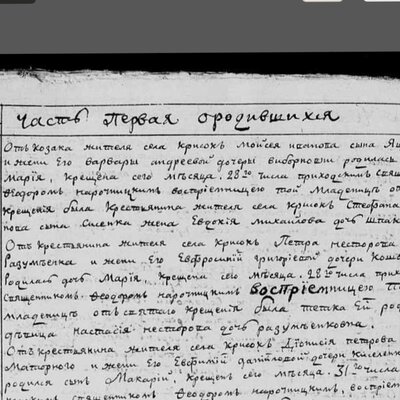 часть Первая ородившихся
Отъ козака жителя села крисокъ Мойсея иванова сына
и жени Его варвары андреевой дочеры виборновни родилась
Мария, крещена сего мѣсяца. 28го числа приходским
Феодоромъ нарочницкимъ воспріетницею той младенцу от
крещения была Крестьянина жителя села крисок Стефана
сына Сисенка жена Евдокія михаилова дочь
Отъ крестьянина жителя села крисокъ Петра несторова
Разумѣенка и жени Его Евфросиніи григоріевой дочери
Родилась дочь Марія, крещена сего мѣсяца. 28го числа
священникомъ Феодоромъ нарочницкимъ воспріетницею
младенцу отъ святаго крещенія была тетка Ей
дѣвица настасія несторова дочь разумѣенковна.
Отъ крестьянина жителя села крисокъ Діонисія петрова
и жени Его Евфиміи даниловой дочери
родился сынъ Макарій, крещенъ сего мѣсяца. 31го числа
священникомъ Феодоромъ нарочницкимъ,